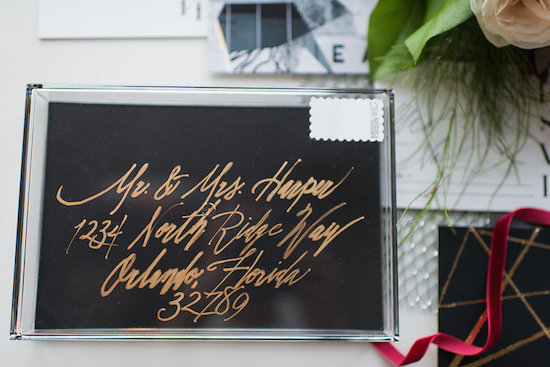 E A
Mr. & Mrs. Harper
1234 North Ridge Way
Orlando, Florida
32789